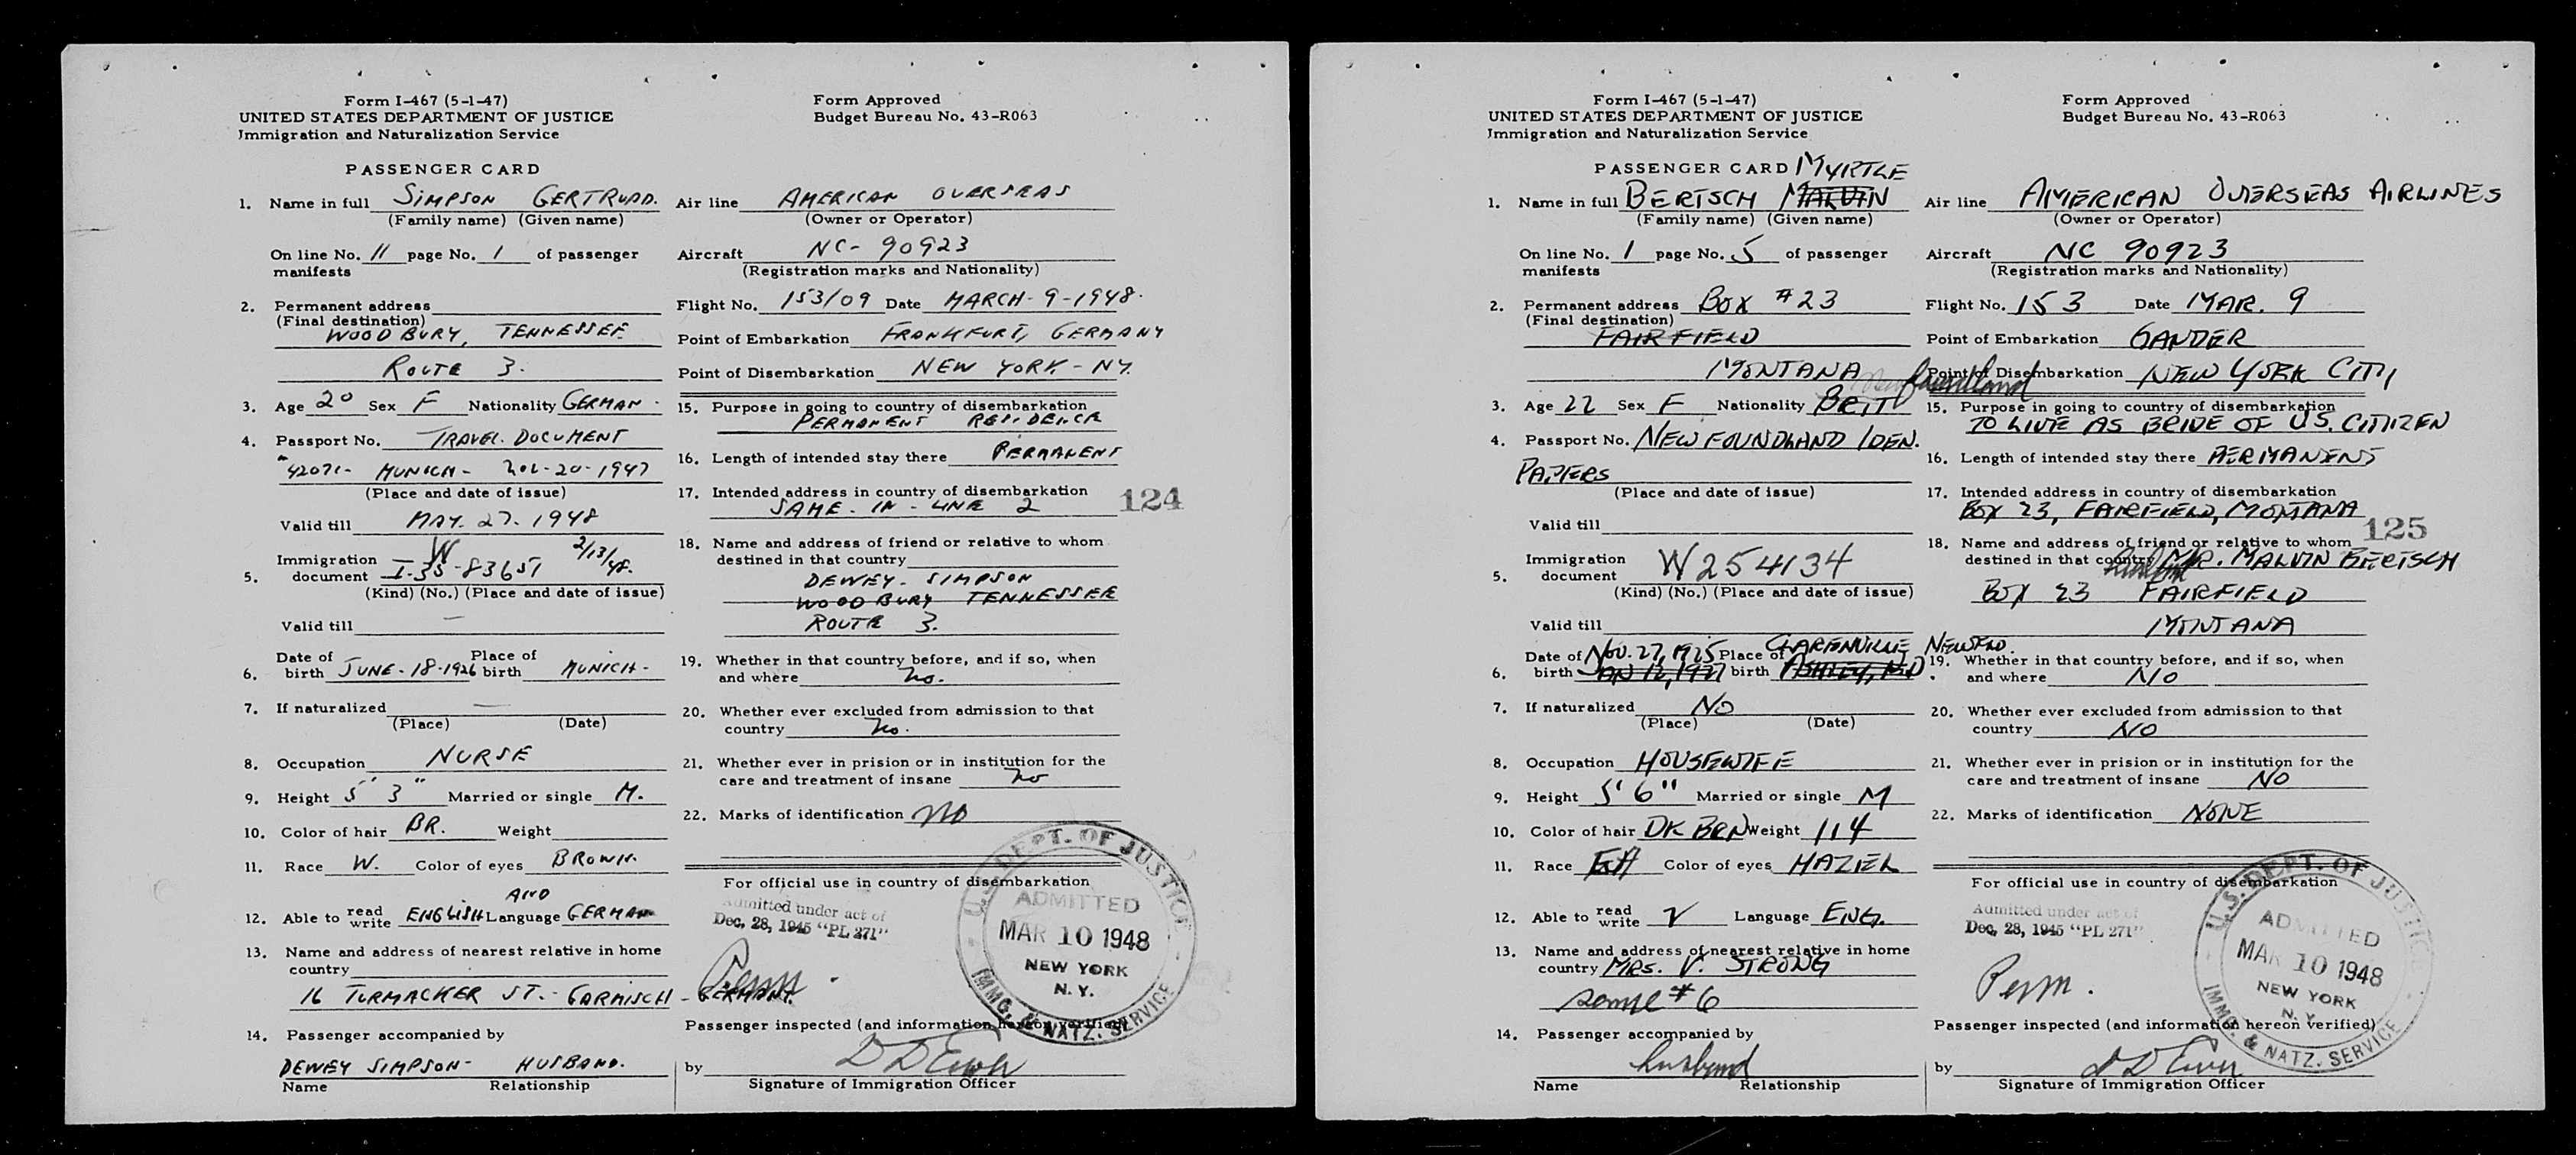 Form I-467 (5-1-47)
UNITED STATES DEPARTMENT OF JUSTICE
Immigration and Naturalization Service
Form Approved
Budget Bureau No. 43-R063
PASSENGER CARD
1. Name in full SIMPSON GERTRUD.
(Family name) (Given name)
On line No. 11 page No. 1 of passenger
manifests
2. Permanent address
(Final destination)
WOODBURY, TENNESSEE
ROUTE 3.
3. Age 20 Sex F Nationality GERMAN
4. Passport No. TRAVEL. DOCUMENT
42071- MUNICH- 20-1947
(Place and date of issue)
Valid till MAY. 27. 1948
5. Immigration document W I-35-83651 2/13/48.
(Kind) (No.) (Place and date of issue)
Valid till —
6. Date of birth JUNE-18-1926 Place of birth MUNICH-
7. If naturalized —
(Place) (Date)
8. Occupation NURSE
9. Height 5' 3" Married or single M.
10. Color of hair BR. Weight
11. Race W. Color of eyes BROWN.
12. Able to read write ENGLISH AND Language GERMAN
13. Name and address of nearest relative in home
country
16 TURMACKER ST.- GARMISCH - GERMANY.
14. Passenger accompanied by
DEWEY SIMPSON- HUSBAND.
Name Relationship
Air line AMERICAN OVERSEAS
(Owner or Operator)
Aircraft NC- 90923
(Registration marks and Nationality)
Flight No. 153/09 Date MARCH-9-1948.
Point of Embarkation FRANKFURT, GERMANY
Point of Disembarkation NEW YORK - NY.
15. Purpose in going to country of disembarkation
PERMANENT RESIDENCE
16. Length of intended stay there PERMANENT
17. Intended address in country of disembarkation
SAME-IN-LINE 2
124
18. Name and address of friend or relative to whom
destined in that country
DEWEY-SIMPSON
WOODBURY TENNESSEE
ROUTE 3.
19. Whether in that country before, and if so, when
and where No.
20. Whether ever excluded from admission to that
country No.
21. Whether ever in prision or in institution for the
care and treatment of insane No
22. Marks of identification NO
For official use in country of disembarkation
Admitted under act of
Dec. 28, 1945 "PL 271"
Perm.
U.S. DEPT. OF JUSTICE
ADMITTED
MAR 10 1948
NEW YORK
N.Y.
IMMG. & NATZ. SERVICE
Passenger inspected (and information hereon verified)
by
Signature of Immigration Officer
Form I-467 (5-1-47)
UNITED STATES DEPARTMENT OF JUSTICE
Immigration and Naturalization Service
Form Approved
Budget Bureau No. 43-R063
PASSENGER CARD MYRTLE
1. Name in full BERTSCH MALVIN
(Family name) (Given name)
On line No. 1 page No. 5 of passenger
manifests
2. Permanent address BOX #23
(Final destination)
FAIRFIELD
MONTANA
3. Age 22 Sex F Nationality BRIT Newfoundland
4. Passport No. NEWFOUNDLAND IDEN.
PAPERS
(Place and date of issue)
Valid till
5. Immigration document W254134
(Kind) (No.) (Place and date of issue)
Valid till
NOV. 27, 1925 CLARENVILLE NEWFLD.
6. Date of birth JAN 12, 1927 Place of birth ASHLEY, N.D.
7. If naturalized NO
(Place) (Date)
8. Occupation HOUSEWIFE
9. Height 5' 6" Married or single M
10. Color of hair DK BRN Weight 114
11. Race Color of eyes HAZIEL
12. Able to read write Language ENG.
13. Name and address of nearest relative in home
country MRS. V. STRONG
same #6
14. Passenger accompanied by
husband
Name Relationship
Air line AMERICAN OVERSEAS AIRLINES
(Owner or Operator)
Aircraft NC 90923
(Registration marks and Nationality)
Flight No. 153 Date MAR. 9
Point of Embarkation GANDER
Point of Disembarkation NEW YORK CITY
15. Purpose in going to country of disembarkation
TO LIVE AS BRIDE OF U.S. CITIZEN
16. Length of intended stay there PERMANENT
17. Intended address in country of disembarkation
BOX 23, FAIRFIELD, MONTANA
125
18. Name and address of friend or relative to whom
destined in that country husband MR. MALVIN BERTSCH
BOX 23 FAIRFIELD
MONTANA
19. Whether in that country before, and if so, when
and where NO
20. Whether ever excluded from admission to that
country NO
21. Whether ever in prision or in institution for the
care and treatment of insane NO
22. Marks of identification NONE
For official use in country of disembarkation
Admitted under act of
Dec. 28, 1945 "PL 271"
Perm.
U.S. DEPT. OF JUSTICE
ADMITTED
MAR 10 1948
NEW YORK
N.Y.
IMMG. & NATZ. SERVICE
Passenger inspected (and information hereon verified)
by
Signature of Immigration Officer